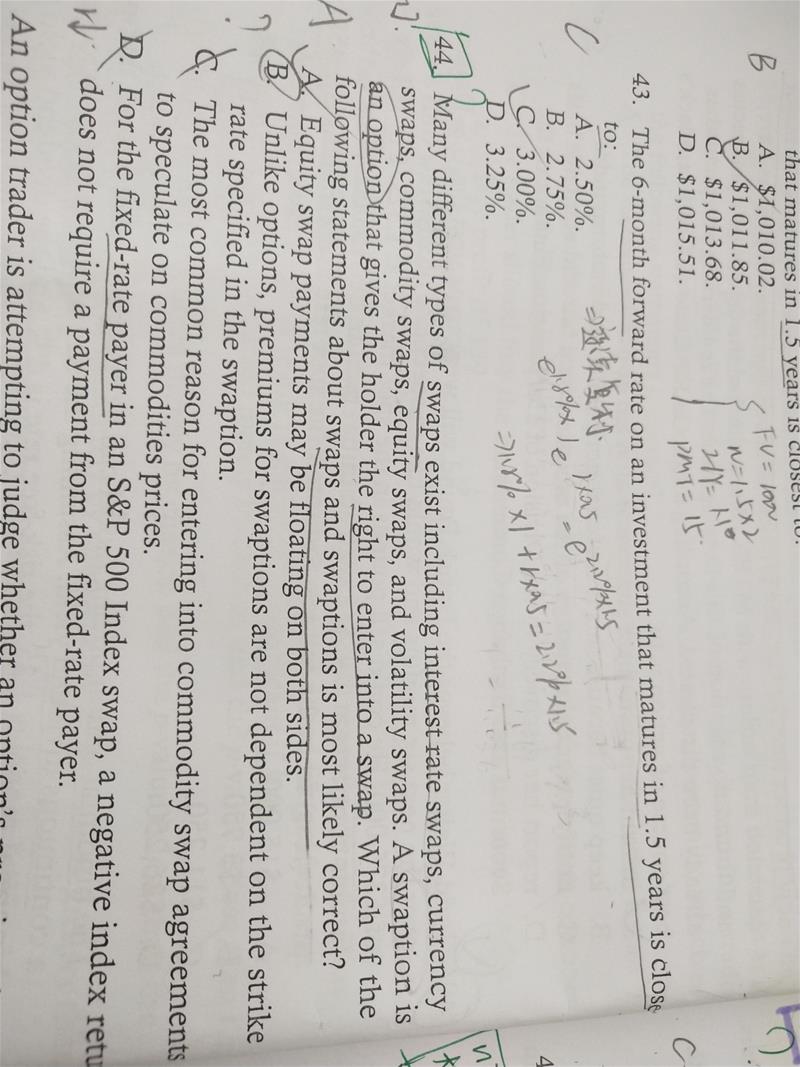 that matures in 1.5 years is closest to:
B
A. $1,010.02.
B. $1,011.85.
C. $1,013.68.
D. $1,015.51.
FV = 1000
N = 1.5×2
PMT = 15
43. The 6-month forward rate on an investment that matures in 1.5 years is close
to:
C
A. 2.50%.
B. 2.75%.
C. 3.00%.
D. 3.25%.
44. Many different types of swaps exist including interest rate swaps, currency
swaps, commodity swaps, equity swaps, and volatility swaps. A swaption is
an option that gives the holder the right to enter into a swap. Which of the
following statements about swaps and swaptions is most likely correct?
A
A. Equity swap payments may be floating on both sides.
? B. Unlike options, premiums for swaptions are not dependent on the strike
rate specified in the swaption.
C. The most common reason for entering into commodity swap agreements
to speculate on commodities prices.
D. For the fixed-rate payer in an S&P 500 Index swap, a negative index retu
does not require a payment from the fixed-rate payer.
An option trader is attempting to judge whether an option's
C
4